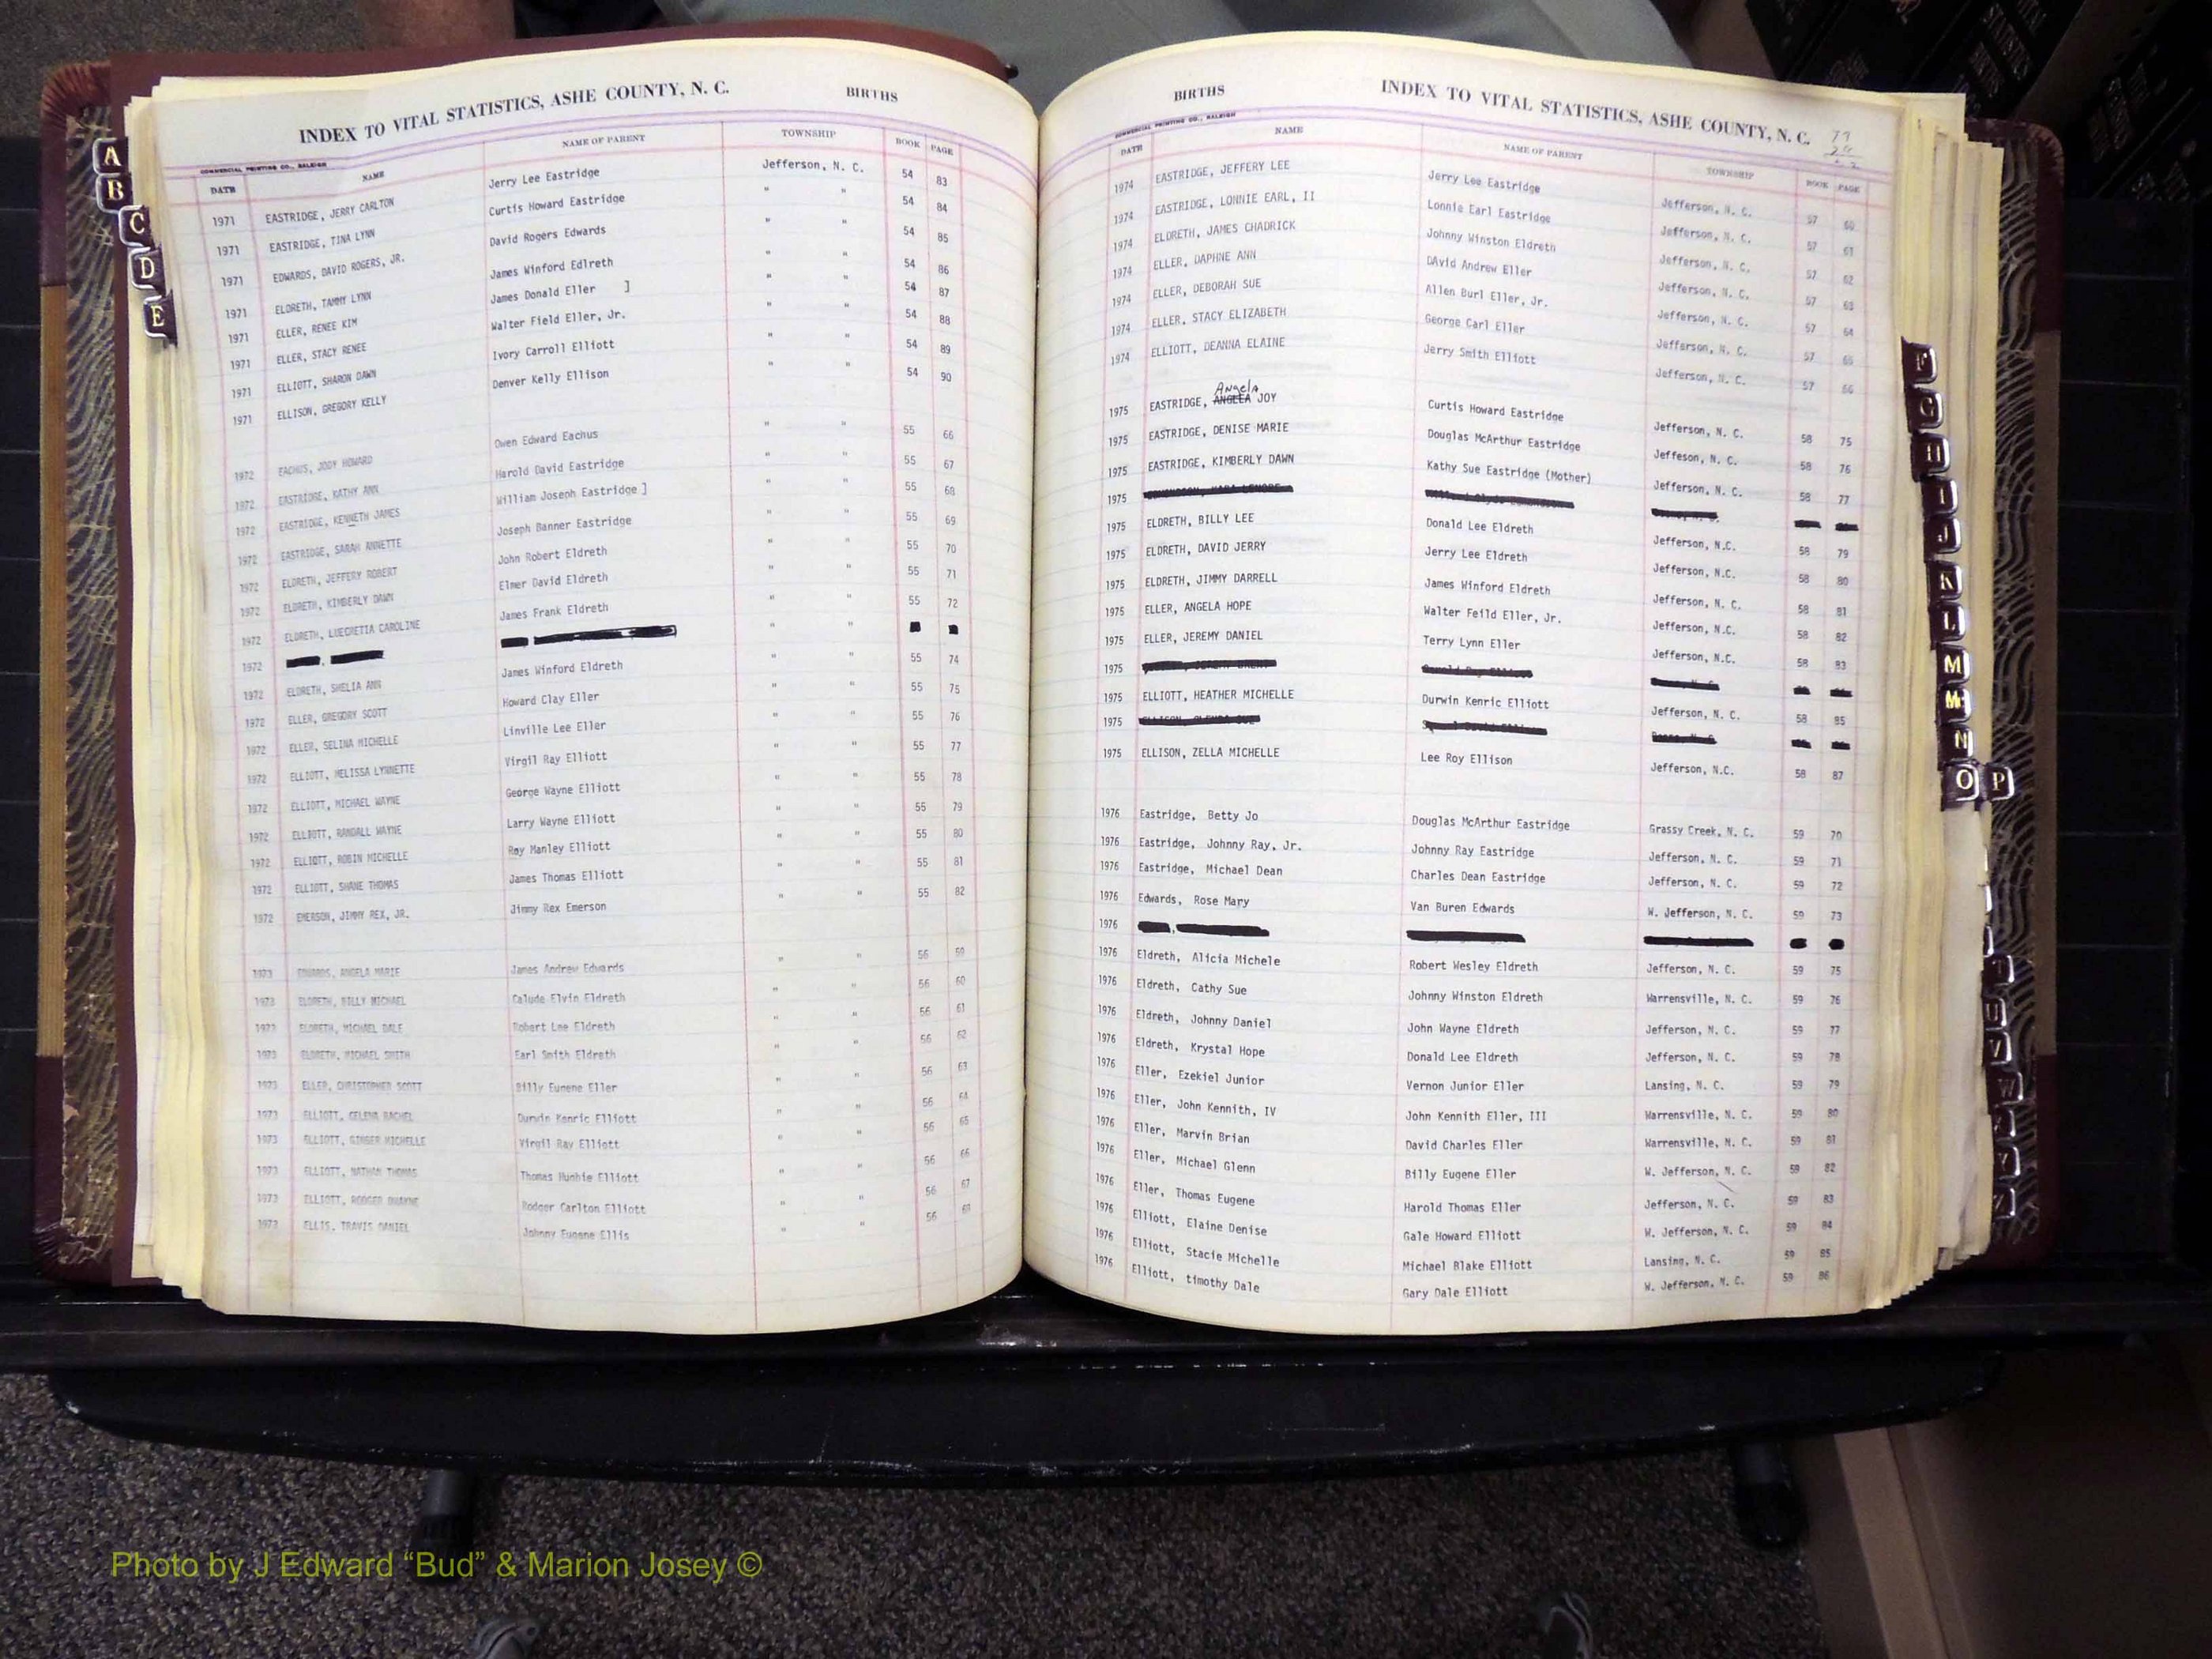 A
B
C
D
E
INDEX TO VITAL STATISTICS, ASHE COUNTY, N. C. BIRTHS
COMMERCIAL PRINTING CO., RALEIGH
DATE NAME NAME OF PARENT TOWNSHIP BOOK PAGE
1971 EASTRIDGE, JERRY CARLTON Jerry Lee Eastridge Jefferson, N. C. 54 83
1971 EASTRIDGE, TINA LYNN Curtis Howard Eastridge " " 54 84
1971 EDWARDS, DAVID ROGERS, JR. David Rogers Edwards " " 54 85
1971 ELDRETH, TAMMY LYNN James Winford Edlreth " " 54 86
1971 ELLER, RENEE KIM James Donald Eller ] " " 54 87
1971 ELLER, STACY RENEE Walter Field Eller, Jr. " " 54 88
1971 ELLIOTT, SHARON DAWN Ivory Carroll Elliott " " 54 89
1971 ELLISON, GREGORY KELLY Denver Kelly Ellison " " 54 90
1972 EACHUS, JODY HOWARD Owen Edward Eachus " " 55 66
1972 EASTRIDGE, KATHY ANN Harold David Eastridge " " 55 67
1972 EASTRIDGE, KENNETH JAMES William Joseph Eastridge ] " " 55 68
1972 EASTRIDGE, SARAH ANNETTE Joseph Banner Eastridge " " 55 69
1972 ELDRETH, JEFFERY ROBERT John Robert Eldreth " " 55 70
1972 ELDRETH, KIMBERLY DAWN Elmer David Eldreth " " 55 71
1972 ELDRETH, LUECRETIA CAROLINE James Frank Eldreth " " 55 72
1972 " "
1972 ELDRETH, SHELIA ANN James Winford Eldreth " " 55 74
1972 ELLER, GREGORY SCOTT Howard Clay Eller " " 55 75
1972 ELLER, SELINA MICHELLE Linville Lee Eller " " 55 76
1972 ELLIOTT, MELISSA LYNNETTE Virgil Ray Elliott " " 55 77
1972 ELLIOTT, MICHAEL WAYNE George Wayne Elliott " " 55 78
1972 ELLIOTT, RANDALL WAYNE Larry Wayne Elliott " " 55 79
1972 ELLIOTT, ROBIN MICHELLE Roy Manley Elliott " " 55 80
1972 ELLIOTT, SHANE THOMAS James Thomas Elliott " " 55 81
1972 EMERSON, JIMMY REX, JR. Jimmy Rex Emerson " " 55 82
1973 EDWARDS, ANGELA MARIE James Andrew Edwards " " 56 59
1973 ELDRETH, BILLY MICHAEL Calude Elvin Eldreth " " 56 60
1973 ELDRETH, MICHAEL DALE Robert Lee Eldreth " " 56 61
1973 ELDRETH, MICHAEL SMITH Earl Smith Eldreth " " 56 62
1973 ELLER, CHRISTOPHER SCOTT Billy Eugene Eller " " 56 63
1973 ELLIOTT, CELENA RACHEL Durwin Kenric Elliott " " 56 64
1973 ELLIOTT, GINGER MICHELLE Virgil Ray Elliott " " 56 65
1973 ELLIOTT, NATHAN THOMAS Thomas Hughie Elliott " " 56 66
1973 ELLIOTT, RODGER DWAYNE Rodger Carlton Elliott " " 56 67
1973 ELLIS, TRAVIS DANIEL Johnny Eugene Ellis " " 56 68
BIRTHS INDEX TO VITAL STATISTICS, ASHE COUNTY, N. C.
COMMERCIAL PRINTING CO., RALEIGH
DATE NAME NAME OF PARENT TOWNSHIP BOOK PAGE
1974 EASTRIDGE, JEFFERY LEE Jerry Lee Eastridge Jefferson, N. C. 57 60
1974 EASTRIDGE, LONNIE EARL, II Lonnie Earl Eastridge Jefferson, N. C. 57 61
1974 ELDRETH, JAMES CHADRICK Johnny Winston Eldreth Jefferson, N. C. 57 62
1974 ELLER, DAPHNE ANN DAvid Andrew Eller Jefferson, N. C. 57 63
1974 ELLER, DEBORAH SUE Allen Burl Eller, Jr. Jefferson, N. C. 57 64
1974 ELLER, STACY ELIZABETH George Carl Eller Jefferson, N. C. 57 65
1974 ELLIOTT, DEANNA ELAINE Jerry Smith Elliott Jefferson, N. C. 57 66
Angela
1975 EASTRIDGE, ANGELA JOY Curtis Howard Eastridge Jefferson, N. C. 58 75
1975 EASTRIDGE, DENISE MARIE Douglas McArthur Eastridge Jeffeson, N. C. 58 76
1975 EASTRIDGE, KIMBERLY DAWN Kathy Sue Eastridge (Mother) Jefferson, N. C. 58 77
1975
1975 ELDRETH, BILLY LEE Donald Lee Eldreth Jefferson, N.C. 58 79
1975 ELDRETH, DAVID JERRY Jerry Lee Eldreth Jefferson, N.C. 58 80
1975 ELDRETH, JIMMY DARRELL James Winford Eldreth Jefferson, N. C. 58 81
1975 ELLER, ANGELA HOPE Walter Feild Eller, Jr. Jefferson, N.C. 58 82
1975 ELLER, JEREMY DANIEL Terry Lynn Eller Jefferson, N.C. 58 83
1975
1975 ELLIOTT, HEATHER MICHELLE Durwin Kenric Elliott Jefferson, N. C. 58 85
1975
1975 ELLISON, ZELLA MICHELLE Lee Roy Ellison Jefferson, N.C. 58 87
1976 Eastridge, Betty Jo Douglas McArthur Eastridge Grassy Creek, N. C. 59 70
1976 Eastridge, Johnny Ray, Jr. Johnny Ray Eastridge Jefferson, N. C. 59 71
1976 Eastridge, Michael Dean Charles Dean Eastridge Jefferson, N. C. 59 72
1976 Edwards, Rose Mary Van Buren Edwards W. Jefferson, N. C. 59 73
1976
1976 Eldreth, Alicia Michele Robert Wesley Eldreth Jefferson, N. C. 59 75
1976 Eldreth, Cathy Sue Johnny Winston Eldreth Warrensville, N. C. 59 76
1976 Eldreth, Johnny Daniel John Wayne Eldreth Jefferson, N. C. 59 77
1976 Eldreth, Krystal Hope Donald Lee Eldreth Jefferson, N. C. 59 78
1976 Eller, Ezekiel Junior Vernon Junior Eller Lansing, N. C. 59 79
1976 Eller, John Kennith, IV John Kennith Eller, III Warrensville, N. C. 59 80
1976 Eller, Marvin Brian David Charles Eller Warrensville, N. C. 59 81
1976 Eller, Michael Glenn Billy Eugene Eller W. Jefferson, N. C. 59 82
1976 Eller, Thomas Eugene Harold Thomas Eller Jefferson, N. C. 59 83
1976 Elliott, Elaine Denise Gale Howard Elliott W. Jefferson, N. C. 59 84
1976 Elliott, Stacie Michelle Michael Blake Elliott Lansing, N. C. 59 85
1976 Elliott, timothy Dale Gary Dale Elliott W. Jefferson, N. C. 59 86
F
G
H
I
J
K
L
M
Mc
N
O P
T
U
V
W
Photo by J Edward “Bud” & Marion Josey ©